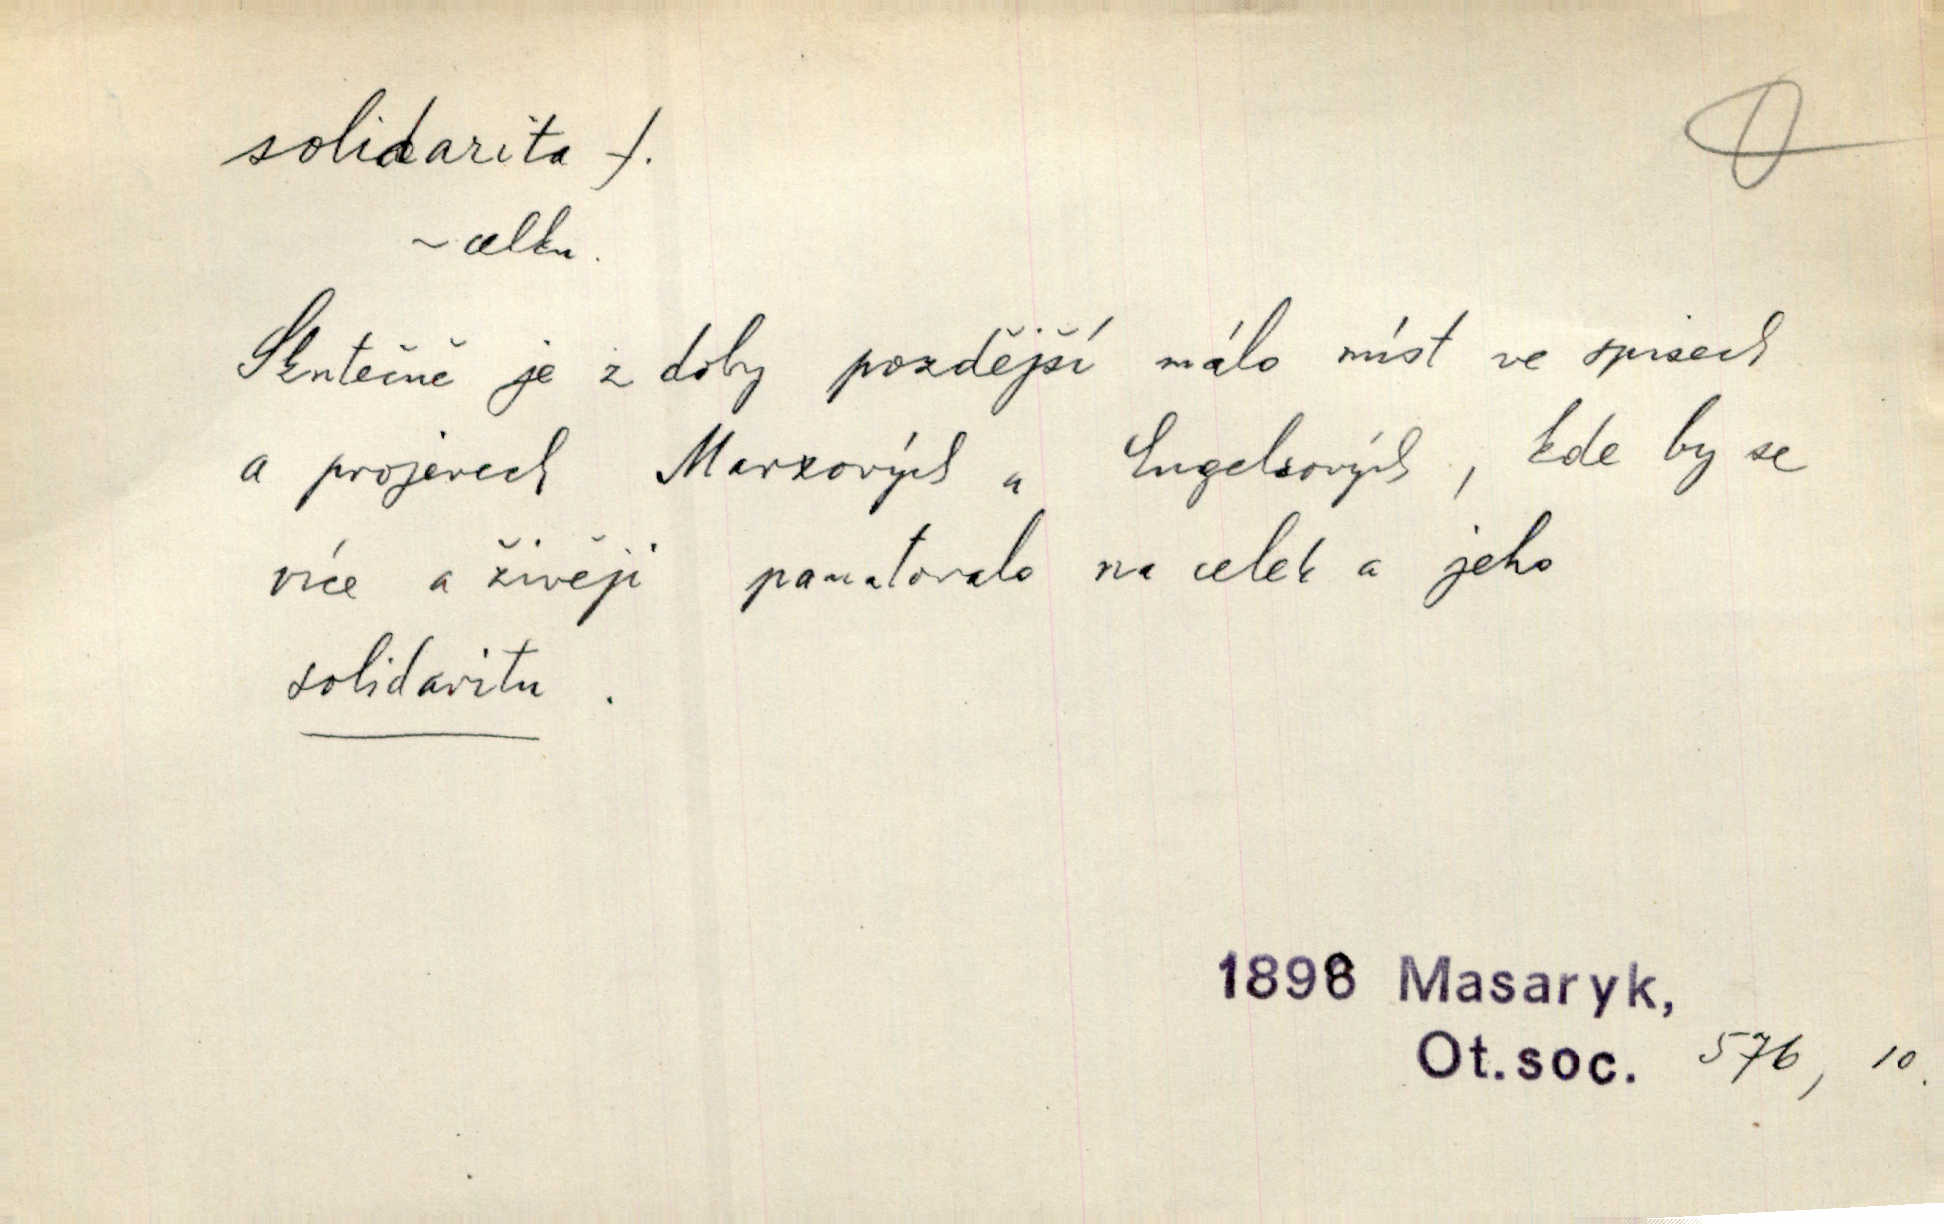 solidarita f.
~ celku.
Skutečně je z doby pozdější málo míst ve spisech
a projevech Marxových a Engelsových, kde by se
více a živěji pamatovalo na celek a jeho
solidaritu.
1898 Masaryk,
Ot. soc. 576, 10.